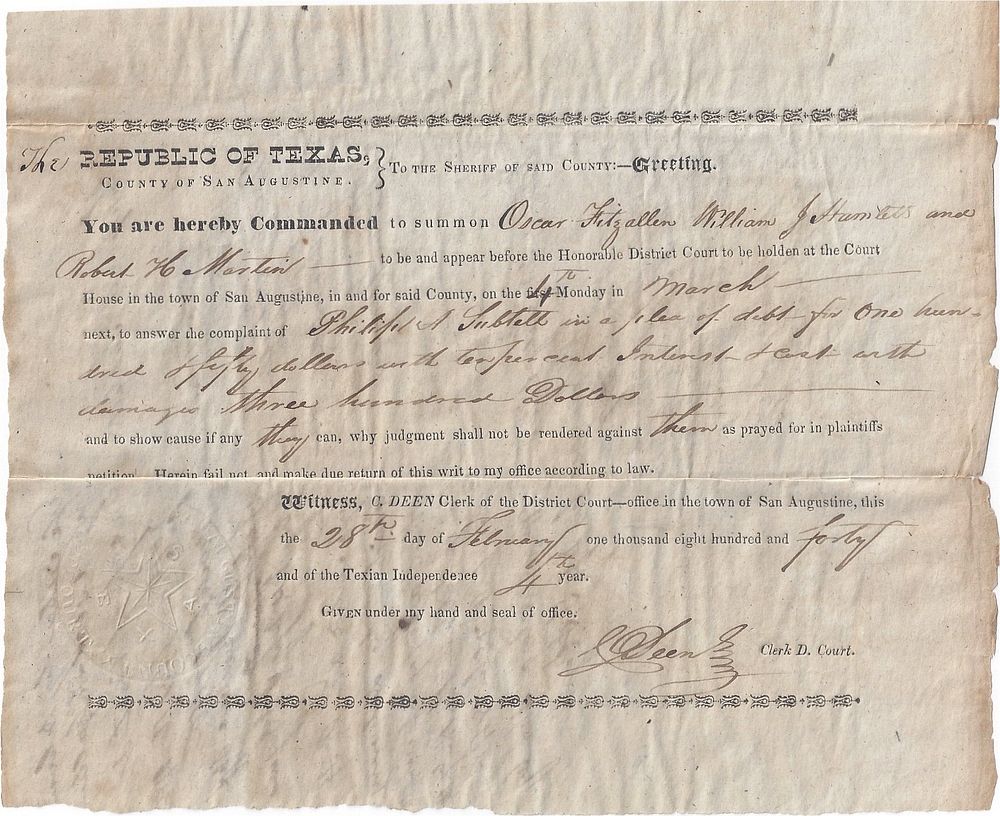 The REPUBLIC OF TEXAS,
COUNTY OF SAN AUGUSTINE.
} TO THE SHERIFF OF SAID COUNTY:—Greeting.
You are hereby Commanded to summon Oscar Fitzallen William J and
Robert H Martin — to be and appear before the Honorable District Court to be holden at the Court
House in the town of San Augustine, in and for said County, on the first 4th Monday in March —
next, to answer the complaint of Philip A Sublett in a plea of debt for One hun-
dred & fifty dollars with ten per cent Interest & cost with
damages three hundred Dollars —
and to show cause if any they can, why judgment shall not be rendered against them as prayed for in plaintiffs
petition. Herein fail not, and make due return of this writ to my office according to law.
Witness, C. DEEN Clerk of the District Court—office in the town of San Augustine, this
the 28th day of February one thousand eight hundred and forty
and of the Texian Independence 4th year.
GIVEN under my hand and seal of office.
C Deen Clerk D. Court.